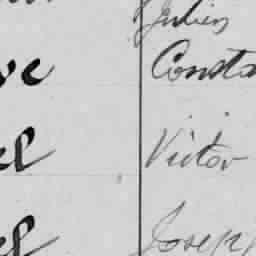 Julien
ve Consta
el Victor
el Joseph